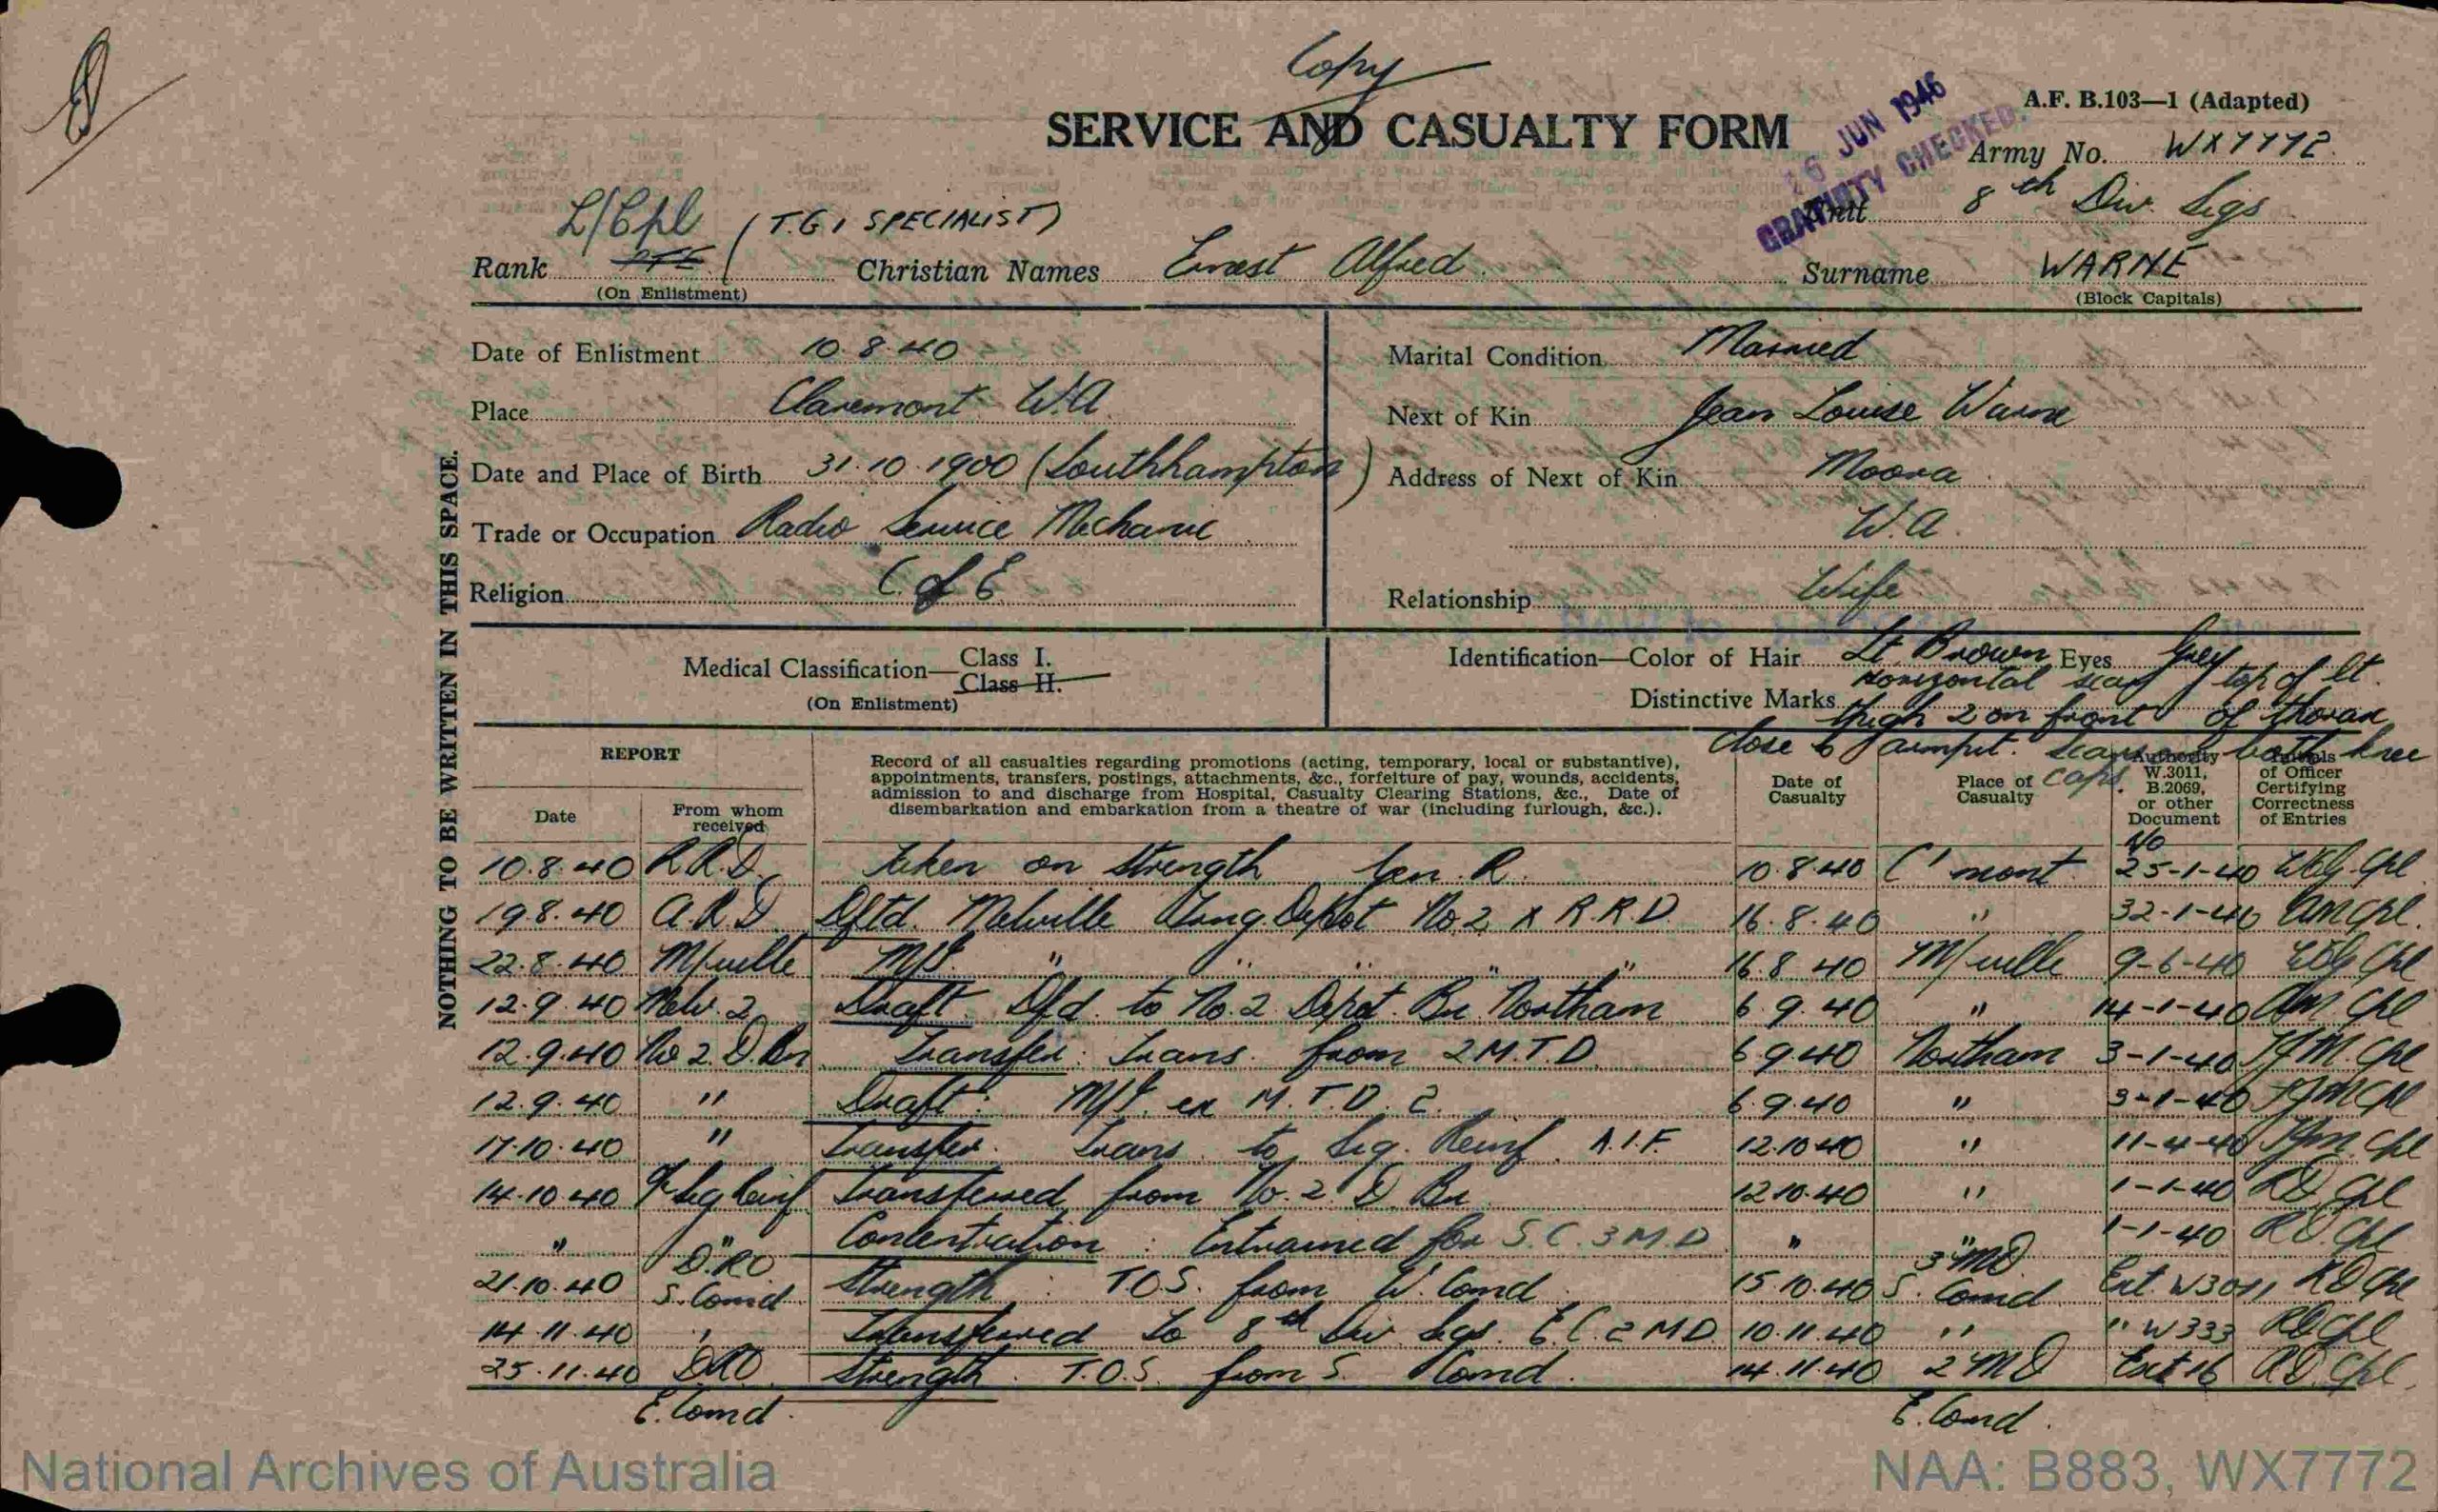 Copy
SERVICE AND CASUALTY FORM
A.F. B.103—1 (Adapted)
16 JUN 1946
GRATUITY CHECKED.
Army No. WX7772
L/Cpl (T.G 1 SPECIALIST)
Unit 8th Div. Sigs
Rank PTE Christian Names Ernest Alfred Surname WARNE
(On Enlistment) (Block Capitals)
Date of Enlistment 10.8.40
Marital Condition Married
Place Claremont W.A.
Next of Kin Jean Louise Warne
Date and Place of Birth 31.10.1900 (Southhampton)
Address of Next of Kin Moora
W.A.
Trade or Occupation Radio Service Mechanic
Religion C of E
Relationship Wife
Medical Classification— Class I.
Class II.
(On Enlistment)
Identification—Color of Hair Lt Brown Eyes Grey
Distinctive Marks horizontal scar top of lt.
thigh 2 on front of thorax
close to armpit. Scars both knee
caps.
NOTHING TO BE WRITTEN IN THIS SPACE.
REPORT
Date
From whom received
Record of all casualties regarding promotions (acting, temporary, local or substantive),
appointments, transfers, postings, attachments, &c., forfeiture of pay, wounds, accidents,
admission to and discharge from Hospital, Casualty Clearing Stations, &c., Date of
disembarkation and embarkation from a theatre of war (including furlough, &c.).
Date of Casualty
Place of Casualty
Authority W.3011, B.2069, or other Document
Initials of Officer Certifying Correctness of Entries
No
10.8.40 R.R.D. Taken on Strength Gen. R. 10.8.40 C'mont 25-1-40 Cpl
19.8.40 A.R.D Dftd. Melville Trng. Depot No.2 x R.R.D. 16.8.40 " 32-1-40 AM Cpl.
22.8.40 M/ville M/I. " " " " " 16.8.40 M/ville 9-6-40 Cpl
12.9.40 Melv. 2 Draft. Dfd. to No.2 Depot. Bn Northam 6.9.40 " 14-1-40 AM Cpl
12.9.40 No 2.D.Bn Transfer: Trans. from 2 M.T.D. 6.9.40 Northam 3-1-40 Cpl
12.9.40 " Draft: M/I. ex M.T.D. 2. 6.9.40 " 3-1-40 Cpl
17.10.40 " Transfer. Trans. to Sig. Reinf. A.I.F. 12.10.40 " 11-4-40 Cpl
14.10.40 Sig Reinf Transferred from No. 2 D. Bn 12.10.40 " 1-1-40 RD Cpl
" " Concentration: Entrained for S.C. 3 M.D " " 1-1-40 RD Cpl
21.10.40 D.R.O S. Comd Strength: T.O.S. from W. Comd 15.10.40 3 MD S. Comd Ext. W3011 RD Cpl
14.11.40 " Transferred to 8th Div Sigs. E.C. 2 M.D. 10.11.40 " " W333 RD Cpl
25.11.40 DRO Strength. T.O.S. from S. Comd. 14.11.40 2 MD Ext 16 RD Cpl.
E. Comd. E. Comd.
National Archives of Australia
NAA: B883, WX7772